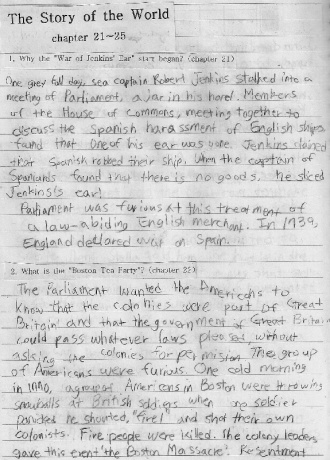 The Story of the World
chapter 21~25
1. Why the "War of Jenkins' Ear" start began? (chapter 21)
One grey fall day, sea captain Robert Jenkins stalked into a
meeting of Parliament, a jar in his hand. Members
of the House of Commons, meeting together to
discuss the Spanish harassment of English ships
found that one of his ear was gone. Jenkins claimed
that Spanish robbed their ship. When the captain of
Spaniards found that there is no goods. He sliced
Jenkins's ear!
Parliament was furious at this treatment of
a law-abiding English merchant. In 1739,
England declared war on Spain.
2. What is the "Boston Tea Party"? (chapter 22)
The Parliament wanted the Americans to
know that the colonies were part of Great
Britain and that the government of Great Britain
could pass whatever laws pleased, without
asking the colonies for permission. The group
of Americans were furious. One cold morning
in a group of Americans in Boston were throwing
snowballs at British soldiers when soldier
panicked he shouted, "fire!" and shot their own
colonists. Five people were killed. The colony leaders
gave this event "the Boston Massacre". Resentment